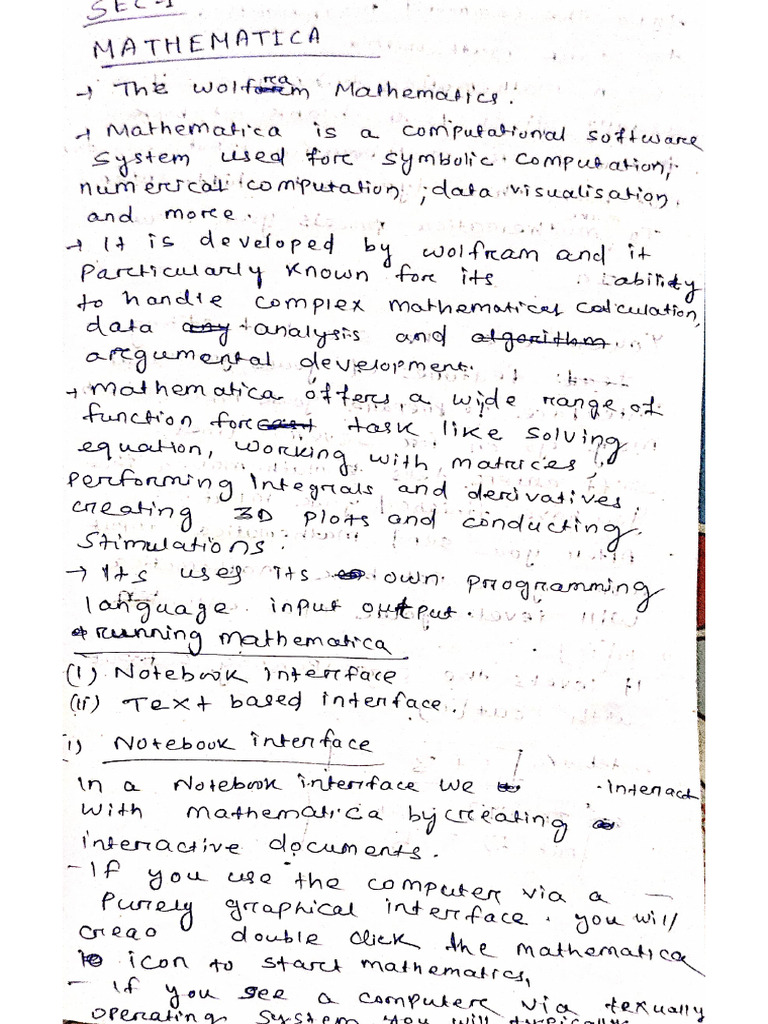 SEC-1
MATHEMATICA
→ The Wolfram Mathematics.
→ Mathematica is a computational software
system used forc symbolic computation,
numerical computation, data visualisation
and morce.
→ It is developed by wolfram and it
Parcticularly known forc its ability
to handle complex mathematical calculation,
data any analysis and algorithm
arcgumental development.
→ Mathematica offers a wide range of
function forc task like solving
equation, working with matrices,
performing integrals and derivatives,
creating 3D plots and conducting
stimulations.
→ Its uses its own programming
language input output.
* running mathematica
(i) Notebook interface
(ii) Text based interface.
(i) Notebook interface
In a Notebook interface we interact
with mathematica by creating
interactive documents.
- If you use the computer via a
purely graphical interface. you will
double click the mathematica
icon to start mathematics,
- If you see a computer via texually
operating system you will typically